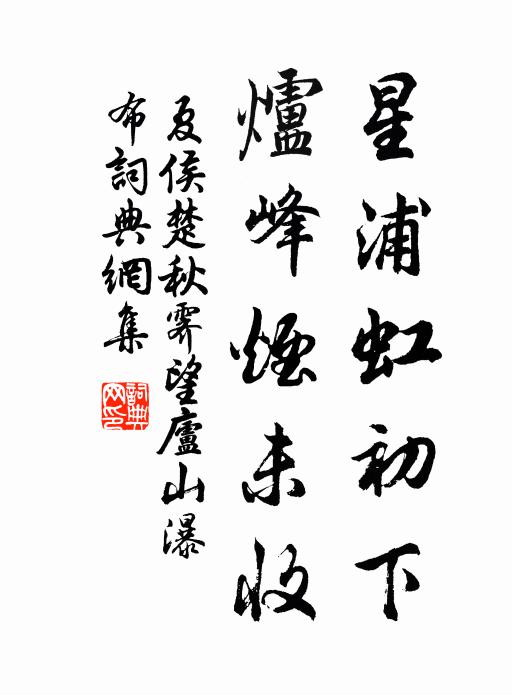 星浦虹初下
爐峰煙未收
夏侯楚秋霽望廬山瀑
布詞典網集
詞典
网印